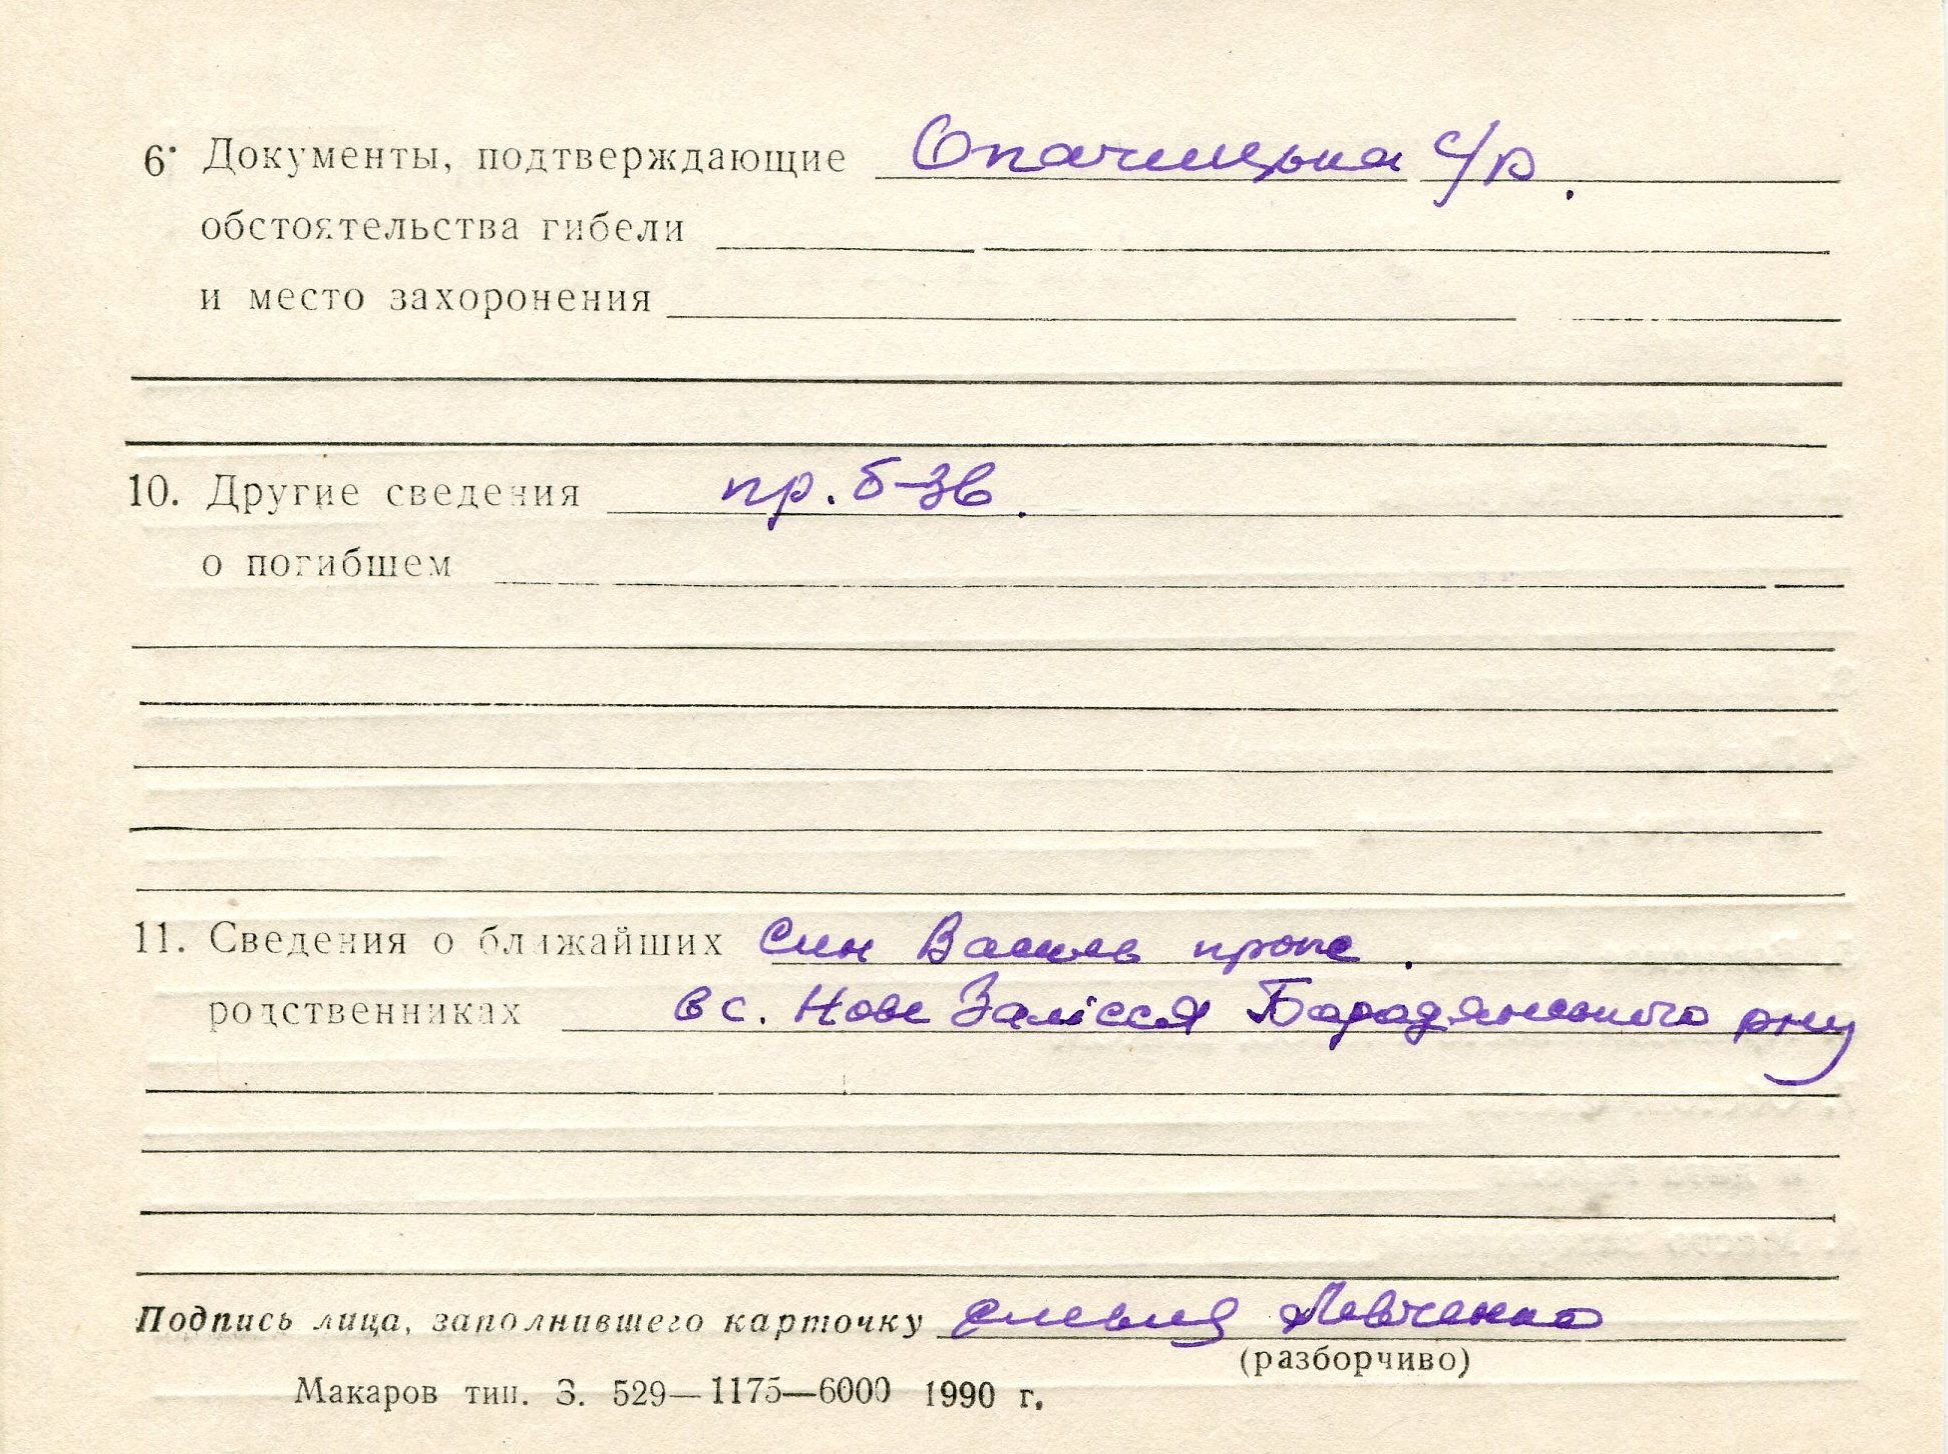 6. Документы, подтверждающие Опачицька с/р.
обстоятельства гибели
и место захоронения
10. Другие сведения пр. б-зв.
о погибшем
11. Сведения о ближайших Син Василь прож.
родственниках в с. Нове Залісся Бородянського р-ну
Подпись лица, заполнившего карточку Левченко
(разборчиво)
Макаров тип. З. 529—1175—6000 1990 г.